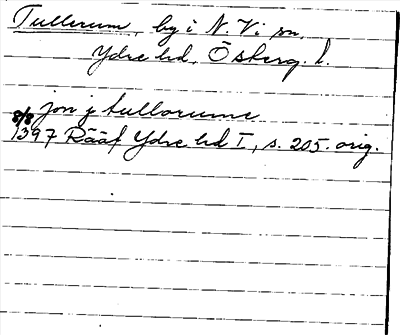 Tullerum, by i N. Vi sn,
Ydre hd, Österg. l.
jon j tullorume
8/8 1397 Rääf Ydre hd I, s. 205. orig.